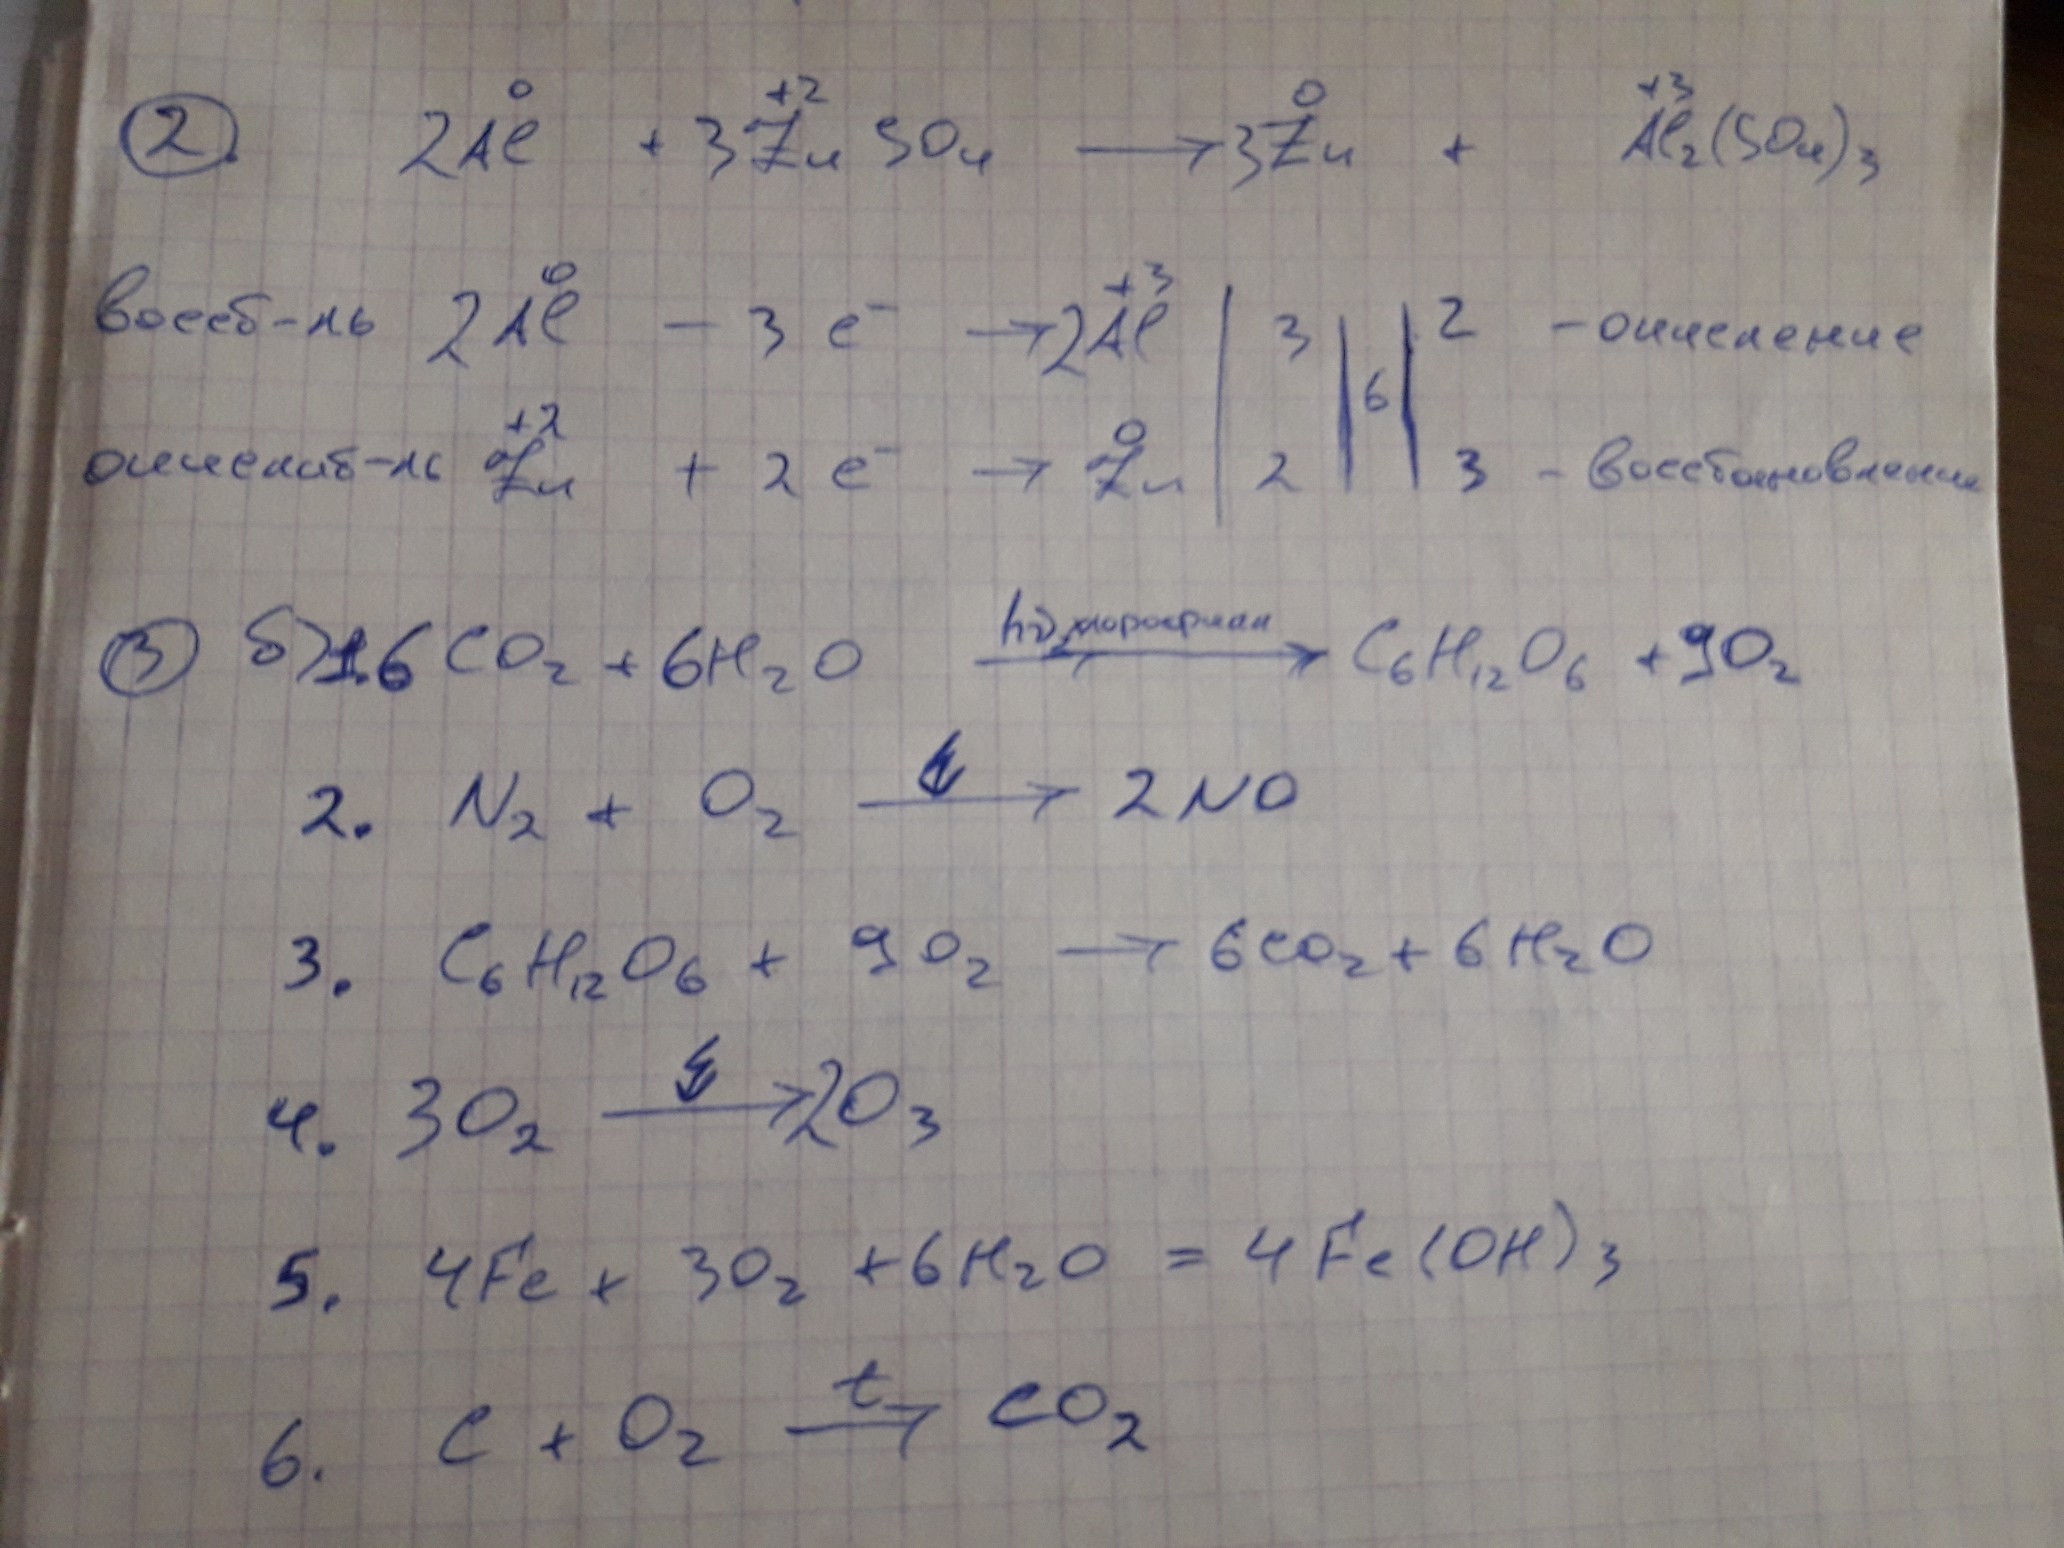 2. 2Al⁰ + 3Zn⁺²SO₄ → 3Zn⁰ + Al₂⁺³(SO₄)₃
восст-ль 2Al⁰ – 3e⁻ → 2Al⁺³ | 3 | | 2 – окисление
6
окислит-ль Zn⁺² + 2e⁻ → Zn⁰ | 2 | | 3 – восстановление
3 б) 1. 6CO₂ + 6H₂O hν, хлорофилл → C₆H₁₂O₆ + 9O₂
2. N₂ + O₂ → 2NO
3. C₆H₁₂O₆ + 9O₂ → 6CO₂ + 6H₂O
4. 3O₂ → 2O₃
5. 4Fe + 3O₂ + 6H₂O = 4Fe(OH)₃
6. C + O₂ t→ CO₂